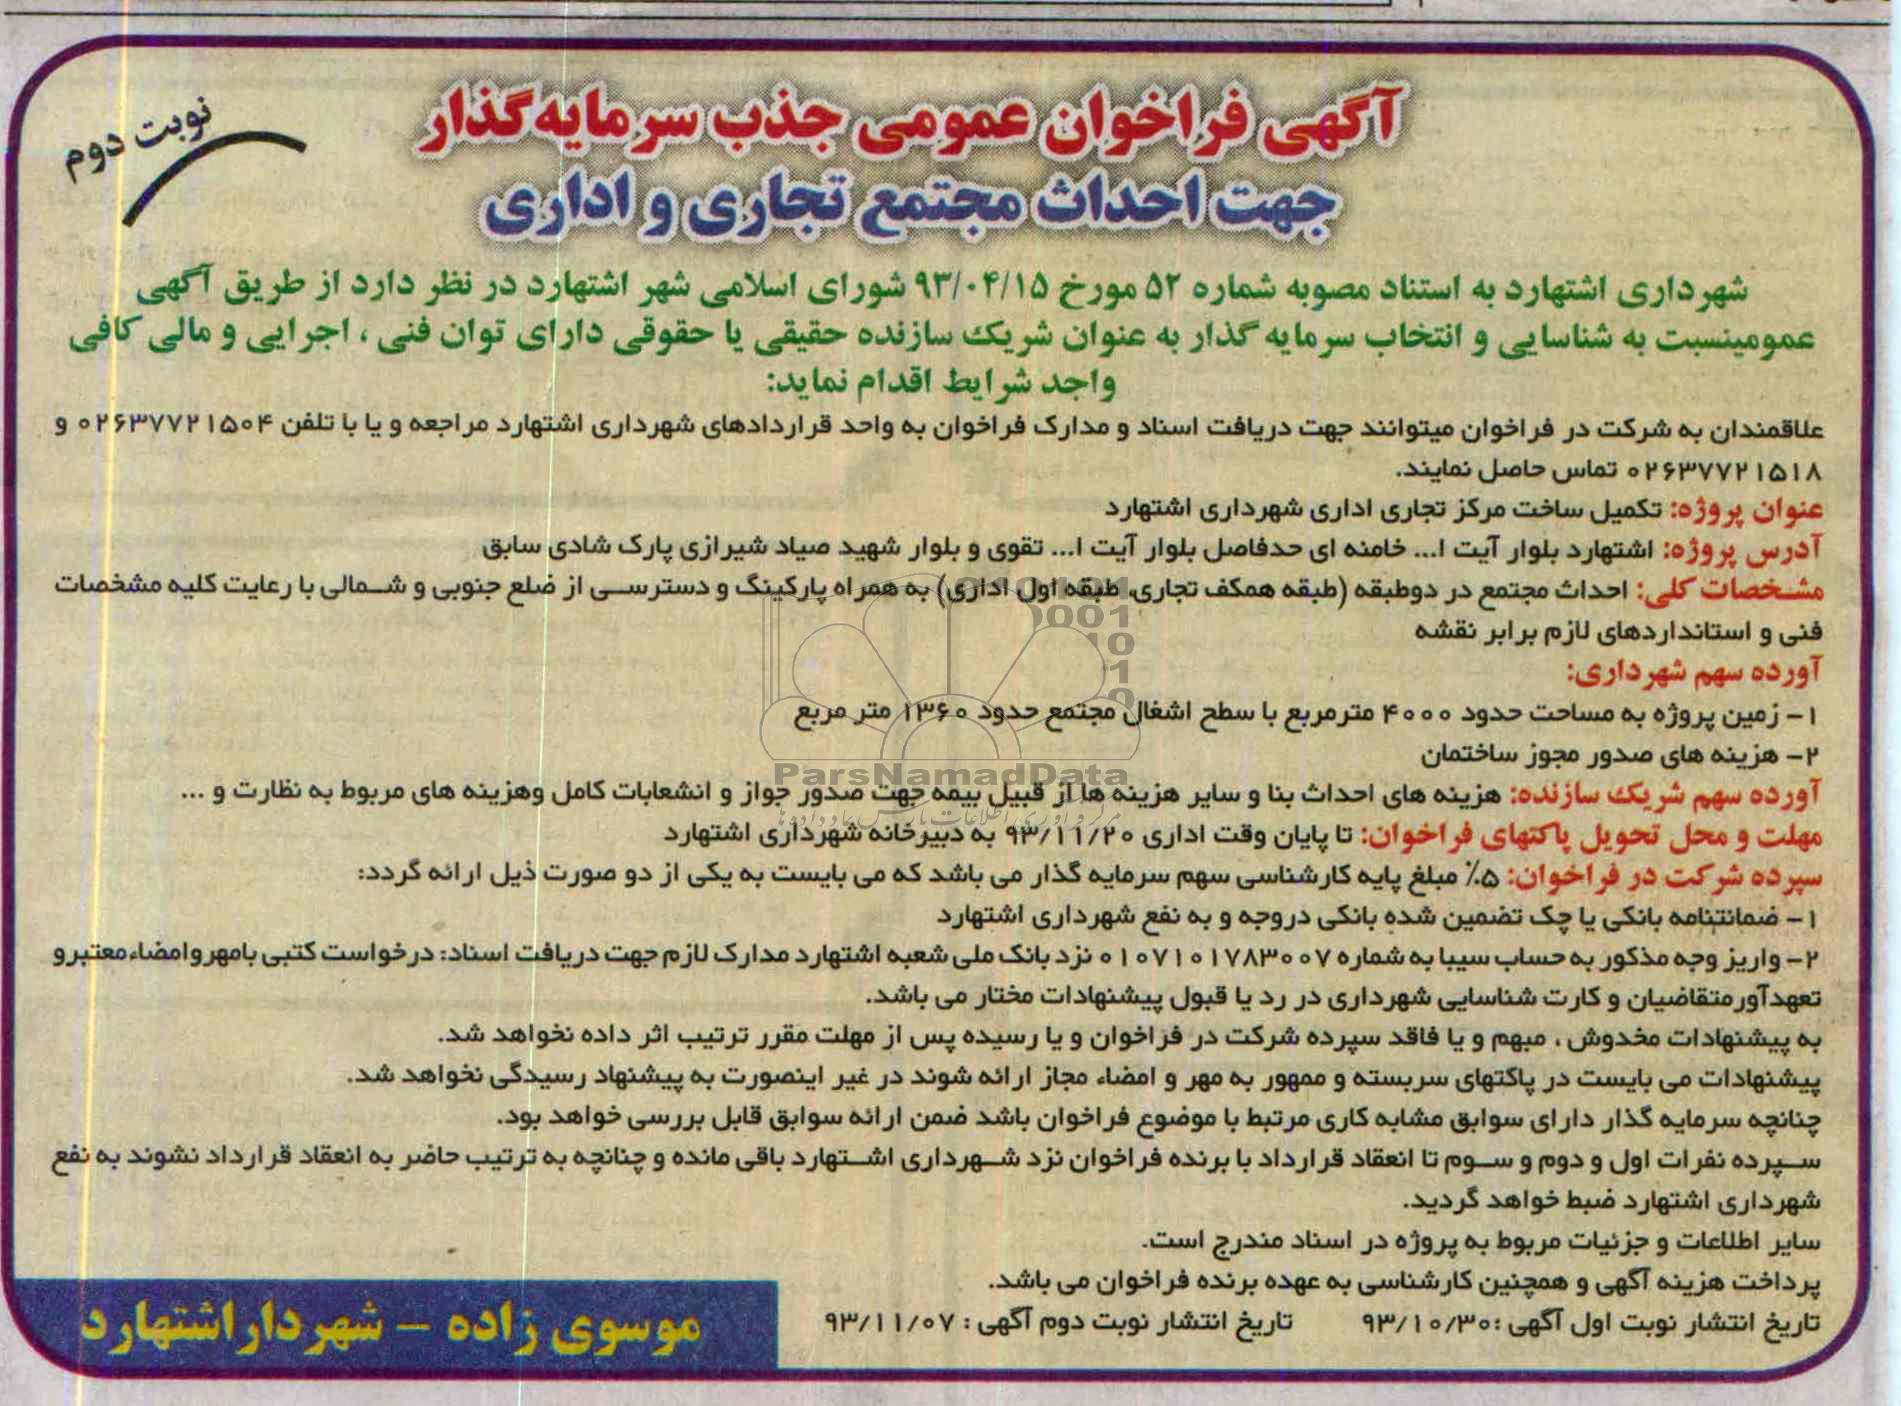 نوبت دوم
آگهی فراخوان عمومی جذب سرمایه‌گذار
جهت احداث مجتمع تجاری و اداری
شهرداری اشتهارد به استناد مصوبه شماره ۵۲ مورخ ۹۳/۰۴/۱۵ شورای اسلامی شهر اشتهارد در نظر دارد از طریق آگهی
عمومینسبت به شناسایی و انتخاب سرمایه گذار به عنوان شریک سازنده حقیقی یا حقوقی دارای توان فنی ، اجرایی و مالی کافی
واجد شرایط اقدام نماید:
علاقمندان به شرکت در فراخوان میتوانند جهت دریافت اسناد و مدارک فراخوان به واحد قراردادهای شهرداری اشتهارد مراجعه و یا با تلفن ۰۲۶۳۷۷۲۱۵۰۴ و
۰۲۶۳۷۷۲۱۵۱۸ تماس حاصل نمایند.
عنوان پروژه: تکمیل ساخت مرکز تجاری اداری شهرداری اشتهارد
آدرس پروژه: اشتهارد بلوار آیت ا... خامنه ای حدفاصل بلوار آیت ا... تقوی و بلوار شهید صیاد شیرازی پارک شادی سابق
مشخصات کلی: احداث مجتمع در دوطبقه (طبقه همکف تجاری، طبقه اول اداری) به همراه پارکینگ و دسترسی از ضلع جنوبی و شمالی با رعایت کلیه مشخصات
فنی و استانداردهای لازم برابر نقشه
آورده سهم شهرداری:
۱- زمین پروژه به مساحت حدود ۴۰۰۰ مترمربع با سطح اشغال مجتمع حدود ۱۳۶۰ متر مربع
۲- هزینه های صدور مجوز ساختمان
ParsNamadData
آورده سهم شریک سازنده: هزینه های احداث بنا و سایر هزینه ها از قبیل بیمه جهت صدور جواز و انشعابات کامل وهزینه های مربوط به نظارت و ...
مهلت و محل تحویل پاکتهای فراخوان: تا پایان وقت اداری ۹۳/۱۱/۲۰ به دبیرخانه شهرداری اشتهارد
سپرده شرکت در فراخوان: ۵٪ مبلغ پایه کارشناسی سهم سرمایه گذار می باشد که می بایست به یکی از دو صورت ذیل ارائه گردد:
۱- ضمانتنامه بانکی یا چک تضمین شده بانکی دروجه و به نفع شهرداری اشتهارد
۲- واریز وجه مذکور به حساب سیبا به شماره ۰۱۰۷۱۰۱۷۸۳۰۰۷ نزد بانک ملی شعبه اشتهارد مدارک لازم جهت دریافت اسناد: درخواست کتبی بامهروامضاءمعتبرو
تعهدآورمتقاضیان و کارت شناسایی شهرداری در رد یا قبول پیشنهادات مختار می باشد.
به پیشنهادات مخدوش ، مبهم و یا فاقد سپرده شرکت در فراخوان و یا رسیده پس از مهلت مقرر ترتیب اثر داده نخواهد شد.
پیشنهادات می بایست در پاکتهای سربسته و ممهور به مهر و امضاء مجاز ارائه شوند در غیر اینصورت به پیشنهاد رسیدگی نخواهد شد.
چنانچه سرمایه گذار دارای سوابق مشابه کاری مرتبط با موضوع فراخوان باشد ضمن ارائه سوابق قابل بررسی خواهد بود.
سپرده نفرات اول و دوم و سوم تا انعقاد قرارداد با برنده فراخوان نزد شهرداری اشتهارد باقی مانده و چنانچه به ترتیب حاضر به انعقاد قرارداد نشوند به نفع
شهرداری اشتهارد ضبط خواهد گردید.
سایر اطلاعات و جزئیات مربوط به پروژه در اسناد مندرج است.
پرداخت هزینه آگهی و همچنین کارشناسی به عهده برنده فراخوان می باشد.
تاریخ انتشار نوبت اول آگهی :۹۳/۱۰/۳۰ تاریخ انتشار نوبت دوم آگهی : ۹۳/۱۱/۰۷
موسوی زاده - شهرداراشتهارد